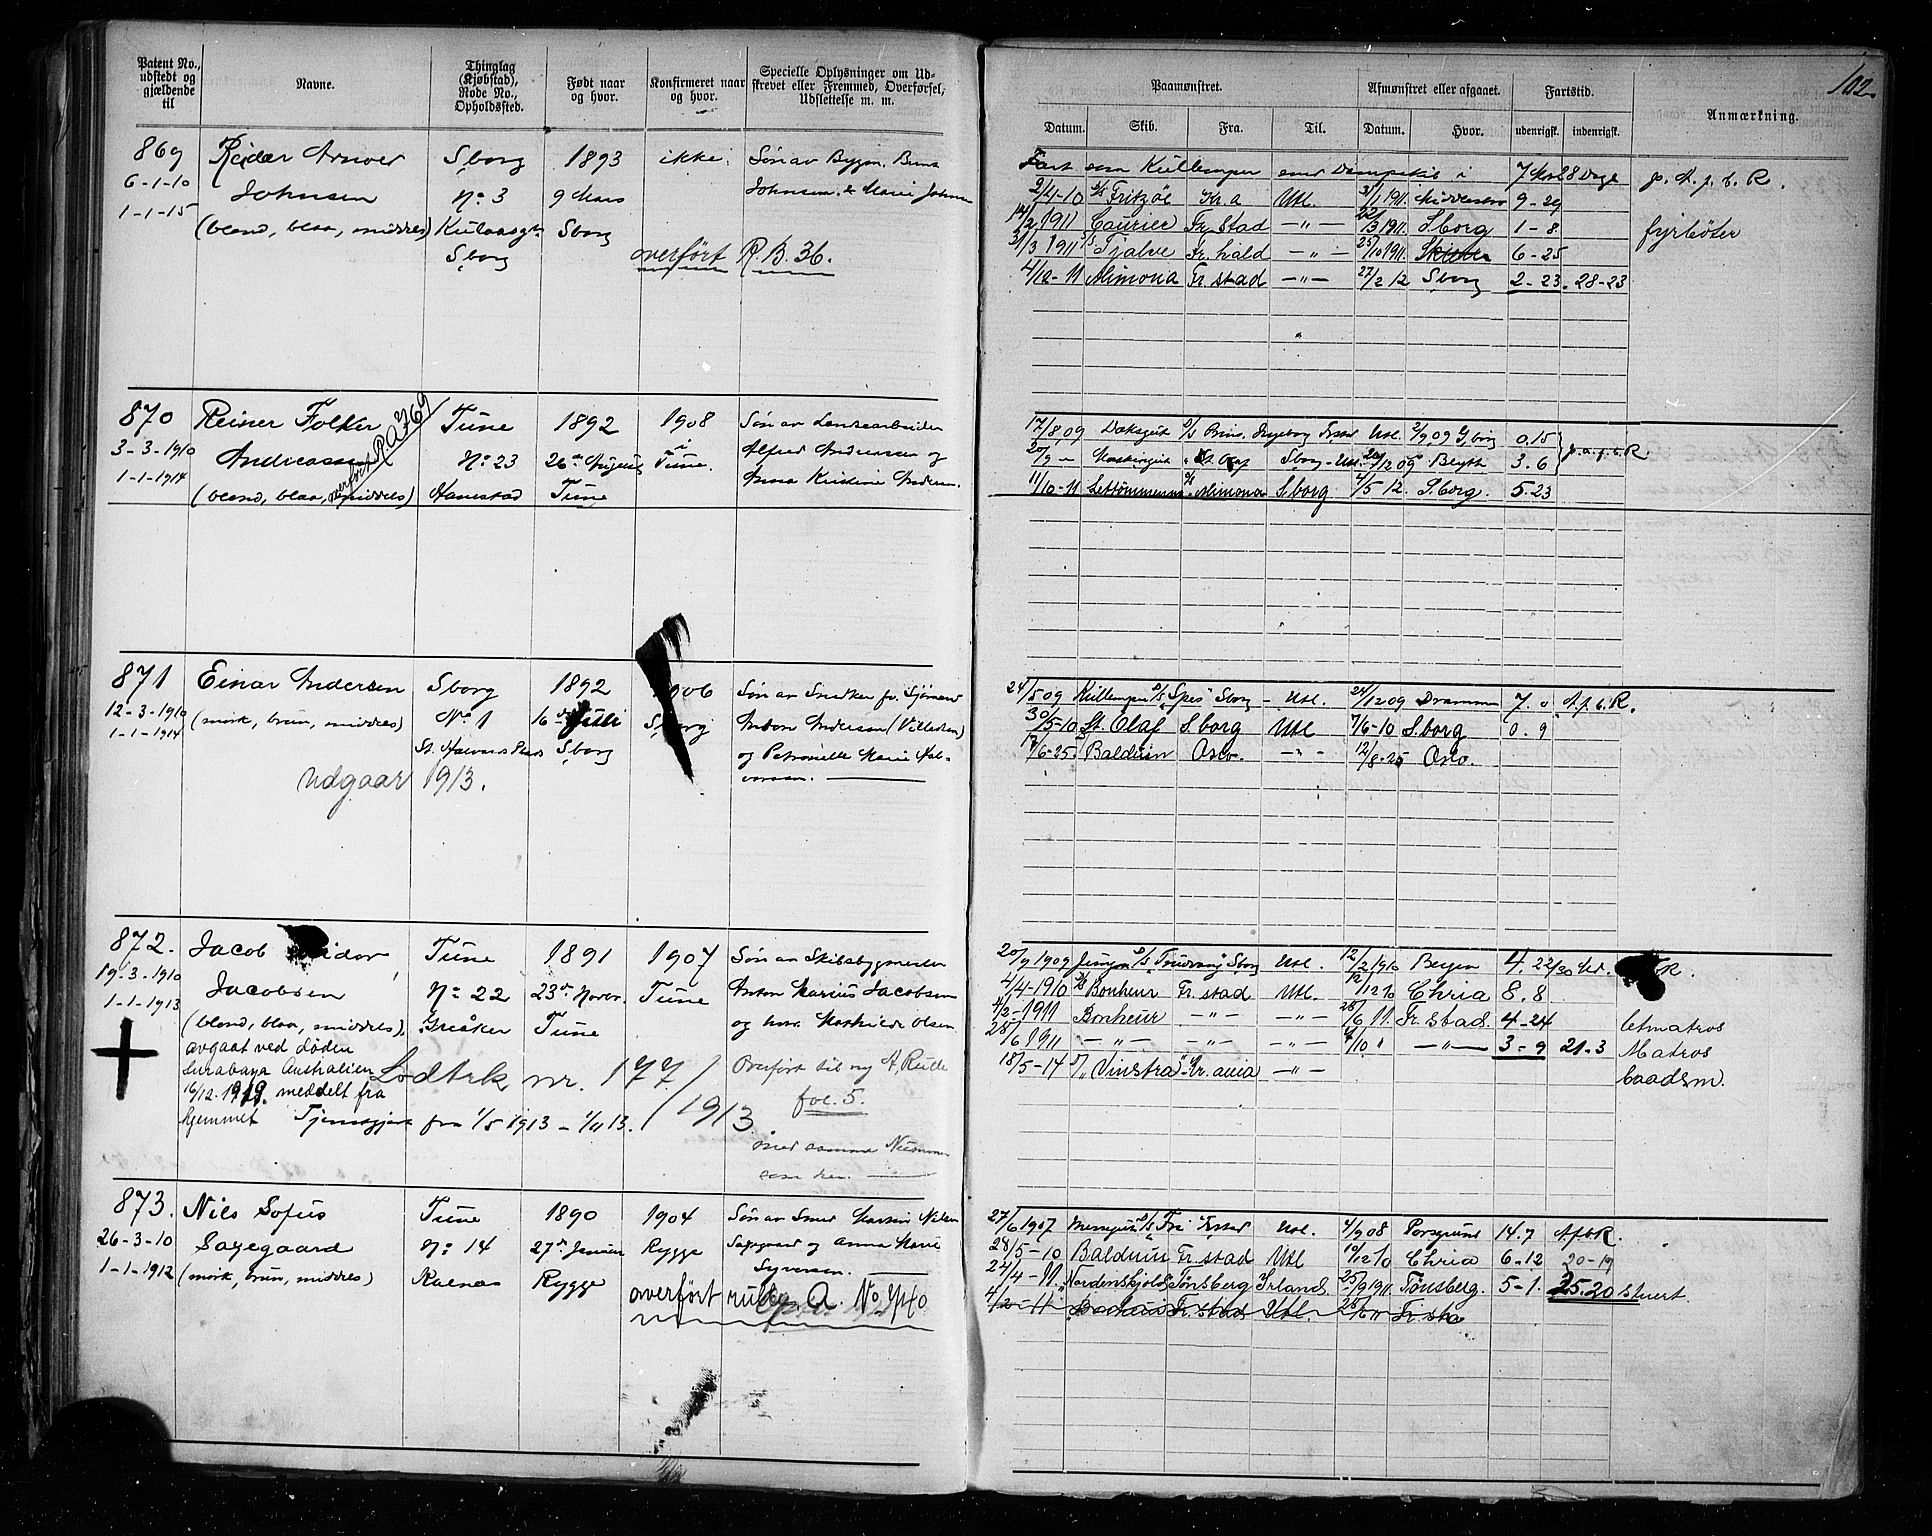 Patent No., udstedt og gjældende til
Navne.
Thinglag (Kjøbstad), Rode No., Opholdssted.
Født naar og hvor.
Konfirmeret naar og hvor.
Specielle Oplysninger om Udskrevet eller Fremmed, Overførsel, Udslettelse m. m.
Paamønstret.
Afmønstret eller afgaaet.
Fartstid.
Anmærkning.
102.
Datum. Skib. Fra. Til. Datum. Hvor. udenrigsk. indenrigsk.
869 Reidar Arnold Sborg 1893 ikke. Søn av Bygm.
6-1-10 Johnsen No 3 9 Mars Johnsen & Marie Johnsen
1-1-15 (blond, blaa, middels) Sborg
Sborg overført R.B. 36.
Fart som Kullemper med Dampskib i 7 Mdr 28 Dage
2/4-10 S/S Fritzöe Kr.a Utl. 3/1 1911. 9-29
14/2 1911 Courier Fr.stad -"- /3 1911. Sborg 1-8 fyrbøter
31/3 1911 S/S Tjalve Fr.hald -"- 25/10 1911. 6-25
4/10-11 Mimona Fr.stad -"- 27/2 12 Sborg 2-23. 28-23
870 Reiner Folker Tune 1892 1908 Søn av
3-3-1910 Andreassen No 23 26de August i Tune. Alfred Andersen og
1-1-1914 (blond, blaa, middels) Hanestad Tune Anna Kristine Andersen.
overført R.A. 769
17/8 09 Dæksgut S/S Prins. Ingeborg Frstad Utl. 2/9 09 0.15
20/9 - St. Olaf Sborg - Utl. /12 09 Blyth 3.6
11/10-11 Mimona S.borg 4/5 12. S.borg. 5-23
871 Einar Andersen Sborg 1892 1906 Søn av Snedker fv. Sjømand
12-3-1910 (mørk, brun, middels) No 1 16de Juli Sborg Anton Andersen
1-1-1914 St. Halvards Plads Sborg og Petronille Marie Halvorsen.
Udgaar 1913.
24/5 09 Kullemper S/S "Spes" Sborg - Utl. 24/12 09 Drammen 7. 0. A.f.b.R.
30/5-10 St. Olaf S.borg Utl 7/6-10 S.borg 0.9
17/6-25. Balduin Oslo. -"- 12/8-25 Oslo.
872. Jacob Tune 1891 1907 Søn av Skibsbygmester
19-3-1910 Jacobsen No 22 23de Novbr. Tune Anton Marius Jacobsen
1-1-1913 (blond, blaa, middels) Greåker Tune og Mathilde Olsen
avgaat ved døden
Surabaya Australien
16/12. 1919. meddelt fra
hjemmet
Lodtrk nr. 177/1913
Tjenestgjort fra 1/5 1913 - 1/11 13.
Overført til ny A. Rulle
fol. 5.
med samme Nummer
som her.
20/9 1909 Jungm. S/S Sborg Utl. 12/2 1910 Bergen 4. 22
4/4-1910 S/S Bonheur Fr.stad Utl. 12/12 10 Chria 8.8
4/2-1911 Bonheur -"- -"- 25/6 11. Fr.stad. 4-24 letmatros
28/6 1911 -"- -"- -"- 4/10 " -"- 3-9 21.3 Matros
18/5-14 Vinstra Kr.ania -"- baadsm.
873. Nils Sofus Tune 1890 1904 Søn av Smed Martin Nilsen
26-3-10 Sagegaard No 14 27de Januar Rygge Sagegaard og Anna Marie
1-1-1912 (mørk, brun, middels) Kalnes Rygge Syversen.
overført rulle A. No 940
27/6 1907 S/S Fri Frstad Utl. 4/9 08 Porsgrund 14.7 AfbR.
28/5-10 Balduin Fr.stad Utl 10/12 10 Chria 6-12 20-19
24/4-11 Nordenskjold Tønsberg Irland. 25/9 1911. Tønsberg. 5-1. 25.20 stuert.
4/2-11 Bonheur Fr.stad Utl. 28/6 11 Fr.sta